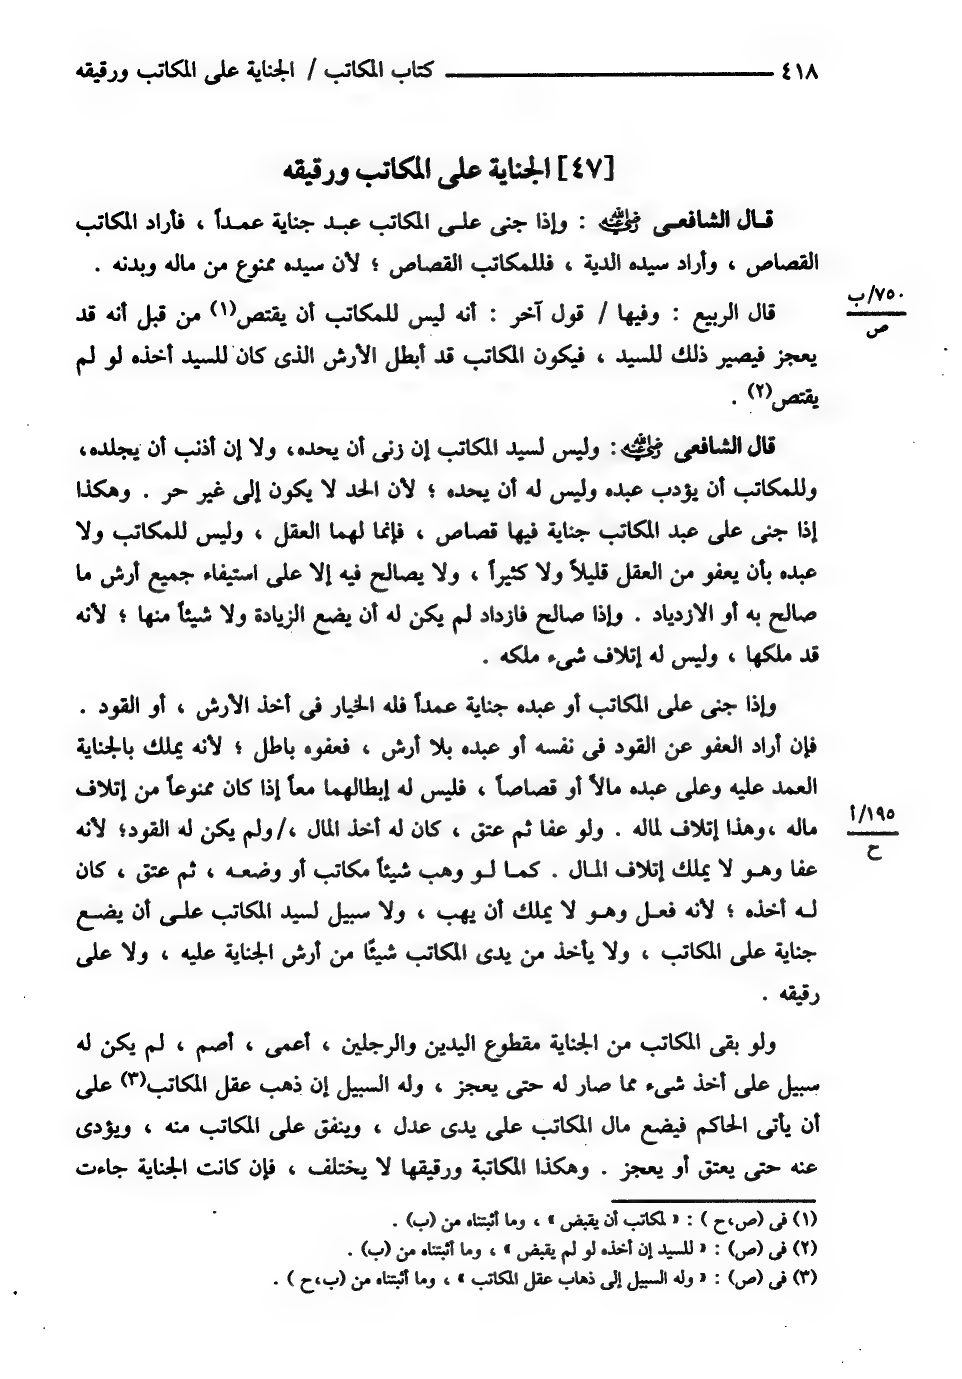 ٤١٨ ـــــــــ كتاب المكاتب / الجناية على المكاتب ورقيقه
[٤٧] الجناية على المكاتب ورقيقه
قـال الشافعـى رضي الله عنه : وإذا جنى علـى المكاتب عبـد جناية عمـداً ، فأراد المكاتب
القصاص ، وأراد سيده الدية ، فللمكاتب القصاص ؛ لأن سيده ممنوع من ماله وبدنه .
٧٥٠/ب
ص
قال الربيع : وفيها / قول آخر : أنه ليس للمكاتب أن يقتص(١) من قبل أنه قد
يعجز فيصير ذلك للسيد ، فيكون المكاتب قد أبطل الأرش الذى كان للسيد أخذه لو لم
يقتص(٢) .
قال الشافعى رضي الله عنه : وليس لسيد المكاتب إن زنى أن يحده، ولا إن أذنب أن يجلده،
وللمكاتب أن يؤدب عبده وليس له أن يحده ؛ لأن الحد لا يكون إلى غير حر . وهكذا
إذا جنى على عبد المكاتب جناية فيها قصاص ، فإنما لهما العقل ، وليس للمكاتب ولا
عبده بأن يعفو من العقل قليلاً ولا كثيراً ، ولا يصالح فيه إلا على استيفاء جميع أرش ما
صالح به أو الازدياد . وإذا صالح فازداد لم يكن له أن يضع الزيادة ولا شيئاً منها ؛ لأنه
قد ملكها ، وليس له إتلاف شىء ملكه .
وإذا جنى على المكاتب أو عبده جناية عمداً فله الخيار فى أخذ الأرش ، أو القود .
فإن أراد العفو عن القود فى نفسه أو عبده بلا أرش ، فعفوه باطل ؛ لأنه يملك بالجناية
العمد عليه وعلى عبده مالاً أو قصاصاً ، فليس له إبطالهما معاً إذا كان ممنوعاً من إتلاف
١٩٥/أ
ح
ماله ،وهذا إتلاف لماله . ولو عفا ثم عتق ، كان له أخذ المال ،/ولم يكن له القود؛ لأنه
عفا وهـو لا يملك إتلاف المـال . كمـا لـو وهب شيئاً مكاتب أو وضعـه ، ثم عتق ، كان
لـه أخذه ؛ لأنه فعـل وهـو لا يملك أن يهب ، ولا سبيل لسيد المكاتب علـى أن يضـع
جناية على المكاتب ، ولا يأخذ من يدى المكاتب شيئًا من أرش الجناية عليه ، ولا على
رقيقه .
ولو بقى المكاتب من الجناية مقطوع اليدين والرجلين ، أعمى ، أصم ، لم يكن له
سبيل على أخذ شىء مما صار له حتى يعجز ، وله السبيل إن ذهب عقل المكاتب(٣) على
أن يأتى الحاكم فيضع مال المكاتب على يدى عدل ، وينفق على المكاتب منه ، ويؤدى
عنه حتى يعتق أو يعجز . وهكذا المكاتبة ورقيقها لا يختلف ، فإن كانت الجناية جاءت
(١) فى (ص،ح ) : « لمكاتب أن يقبض » ، وما أثبتناه من (ب) .
(٢) فى (ص) : « للسيد إن أخذه لو لم يقبض » ، وما أثبتناه من (ب) .
(٣) فى (ص) : « وله السبيل إلى ذهاب عقل المكاتب » ، وما أثبتناه من (ب،ح ) .